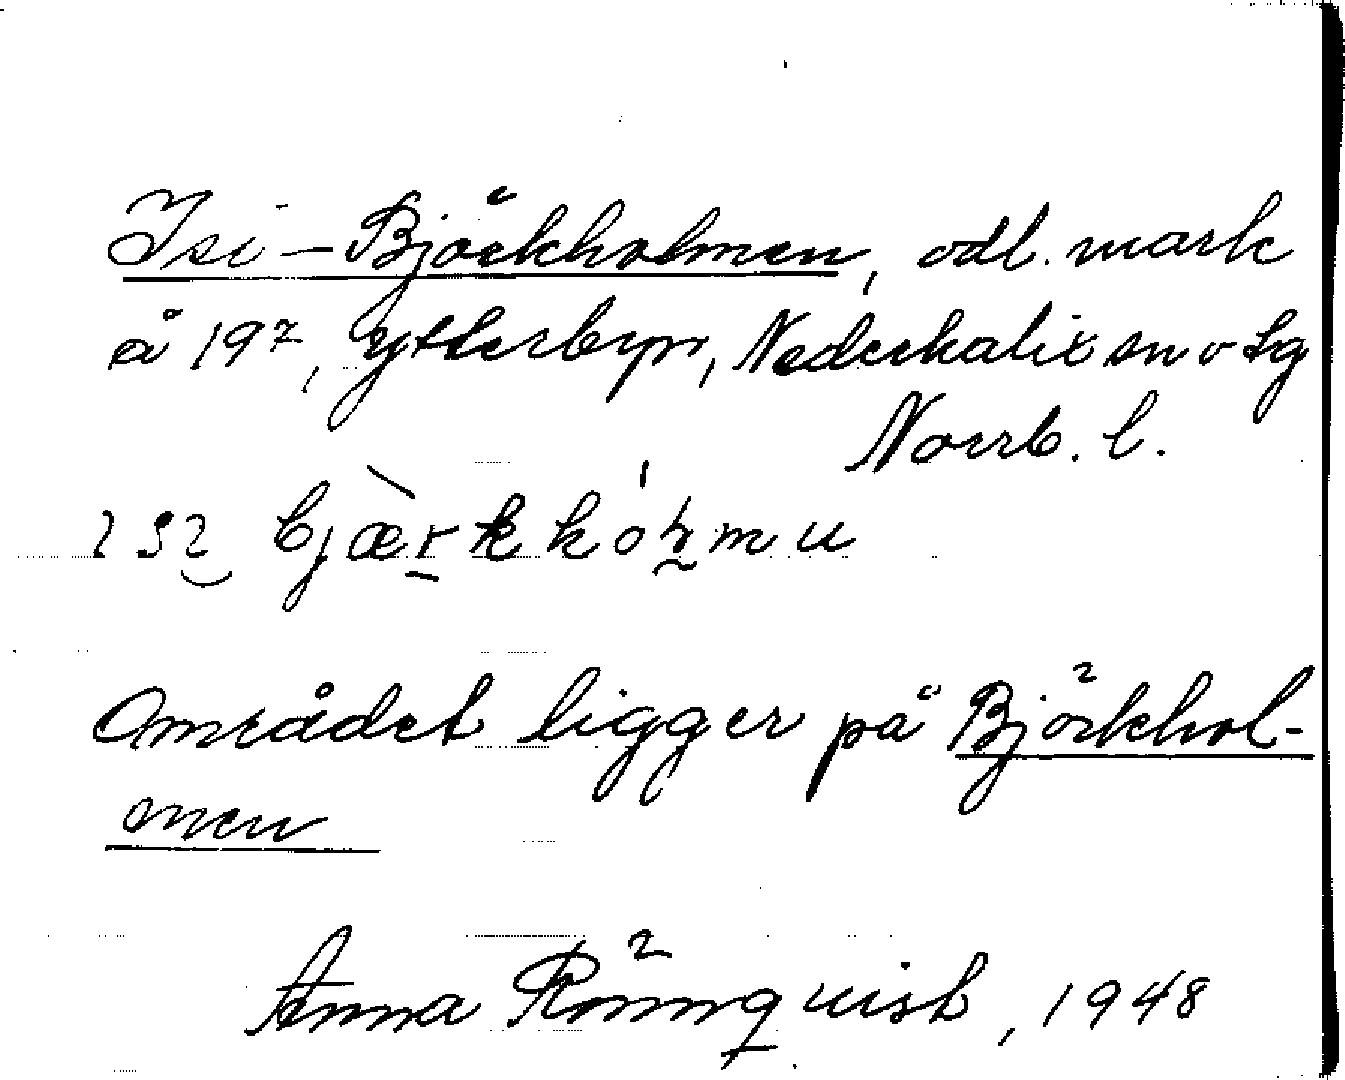 Isi-Björkholmen, odl. mark
å 197, Ytterbyn, Nederkalix sn o tg
Norrb. l.
Området ligger på Björkhol-
men
Anna Rönnqvist, 1948